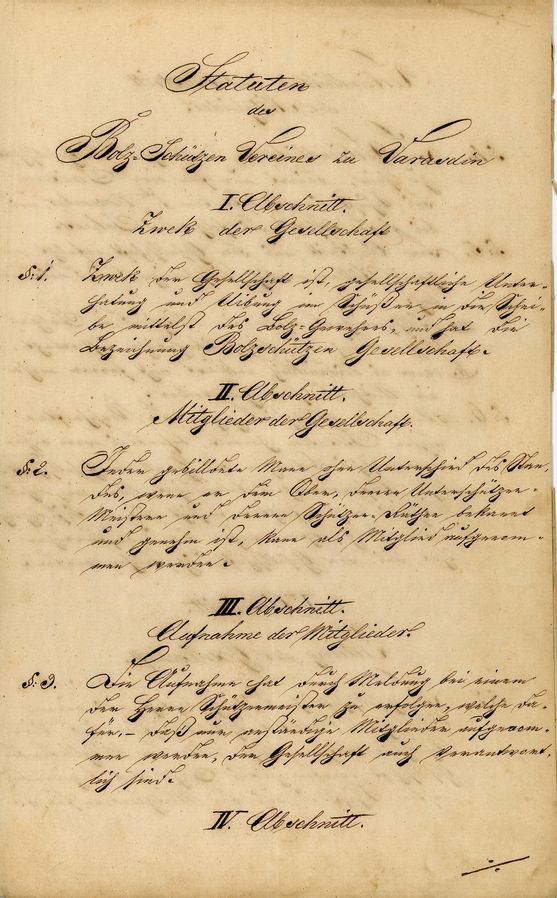 Statuten
des
Bolz-Schützen Vereines zu Varasdin
I. Abschnitt.
Zwek der Gesellschaft
§: 1. Zwek der Gesellschaft ist, gesellschaftliche Unter-
haltung und Uibung im Schüßen in die Schei-
be mittelst des Bolz-Gewehres, und hat die
Bezeichnung Bolzschützen Gesellschaft.
II. Abschnitt.
Mitglieder der Gesellschaft.
§: 2. Jeder gebildete Mann ohne Unterschied des Stan-
des, wenn er dem Ober, deren Unterschützen
Meistern und deren Schützen-Räthen bekannt
und genehm ist, kann als Mitglied aufgenom-
men werden.
III. Abschnitt.
Aufnahme der Mitglieder.
§: 3. Die Aufnahme hat durch Meldung bei einem
der Herrn Schützenmeister zu erfolgen, welche da-
für,- daß nur anständige Mitglieder aufgenom-
men werden, der Gesellschaft auch verantwort-
lich sind.
IV. Abschnitt.